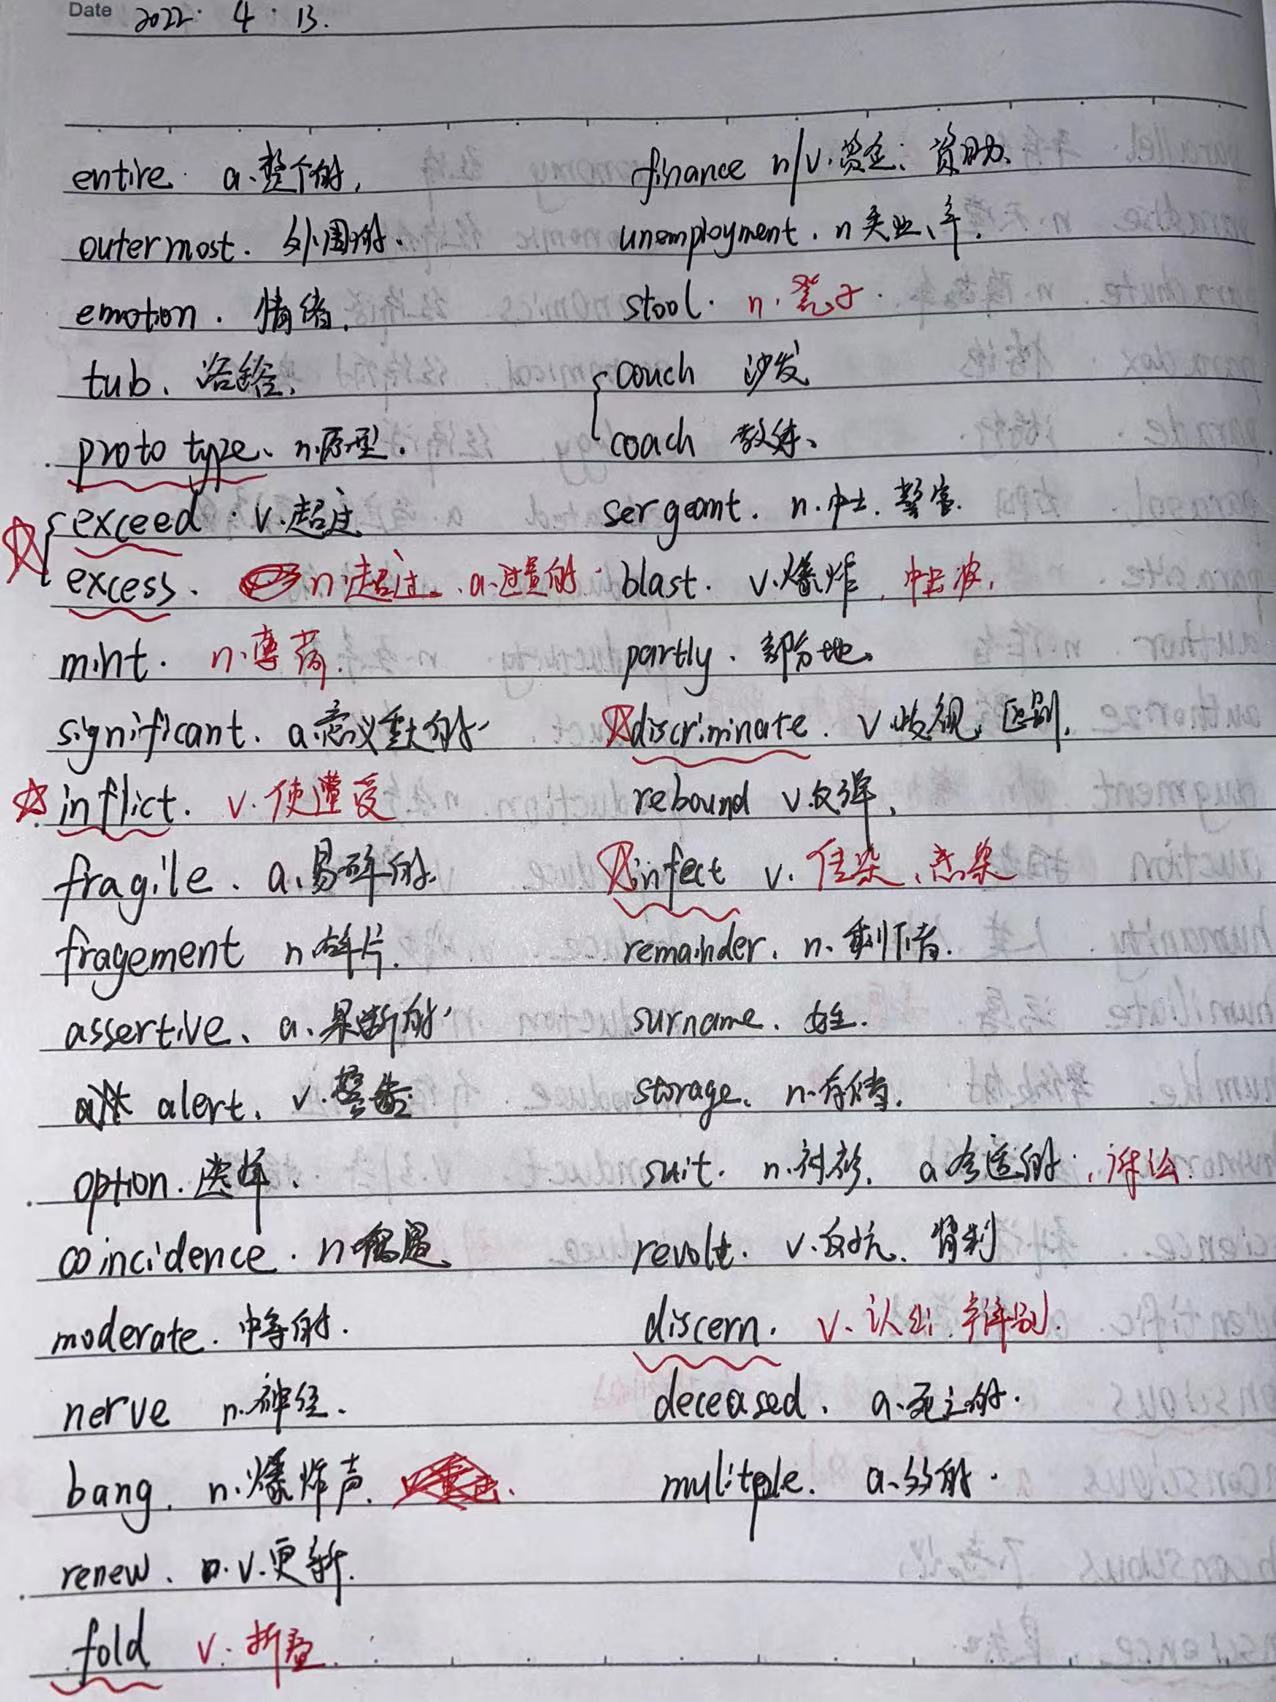 Date 2022. 4. 13.
entire. a.整个的.
outermost. 外围的.
emotion. 情绪.
tub. 浴缸.
prototype. n.原型.
exceed. v.超过
excess. n.超过. a.过量的
mint. n.薄荷.
significant. a.意义重大的.
inflict. v.使遭受
fragile. a.易碎的.
fragement n.碎片.
assertive. a.果断的.
alert. v.警告
option. 选择.
coincidence. n.偶遇.
moderate. 中等的.
nerve n.神经.
bang. n.爆炸声.
renew. v.更新.
fold v.折叠.
finance n/v.资金; 资助.
unemployment. n失业、率.
stool. n.凳子.
couch 沙发
coach 教练.
sergeant. n.中士. 警官.
blast. v.爆炸. 冲击波.
partly. 部分地.
discriminate. v歧视, 区别.
rebound v.反弹.
infect v. 传染、感染
remainder. n.剩下者.
surname. 姓.
storage. n.存储.
suit. n.衬衫. a合适的. 诉讼.
revolt. v.反抗. 背判
discern. v.认出; 辨别.
deceased. a.死亡的.
mulitple. a.多的.